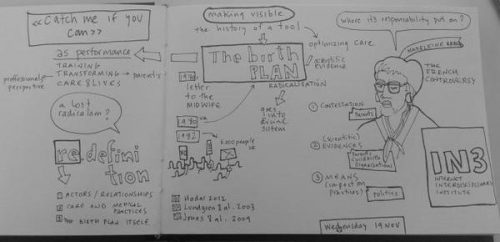 <<CATCH ME IF YOU
CAN>>
as performance
TRAINING
TRANSFORMING → parents
CARE & LIVES
professional's
perspective
a lost
radicalism?
re-defini
tion
ACTORS / RELATIONSHIPS
CARE AND MEDICAL
PRACTICES
THE BIRTH PLAN ITSELF
making visible
the history of a tool
The birth
PLAN
optimizing care
scientific
evidence
RADICALISATION
letter
to the
MIDWIFE
goes
into
system
1980
1992
people
Hodal 2012
Lundgren & al. 2003
Jonas & al. 2009
where its responsibility put on?
MADELEINE
THE
FRENCH
CONTROVERSY
① CONTESTATION
Parents
② (scientific)
EVIDENCES
③ MEANS
(impact on
practices)
Politics
IN3
INTERNET
INTERDISCIPLINARY
INSTITUTE
Wednesday 19 NOV